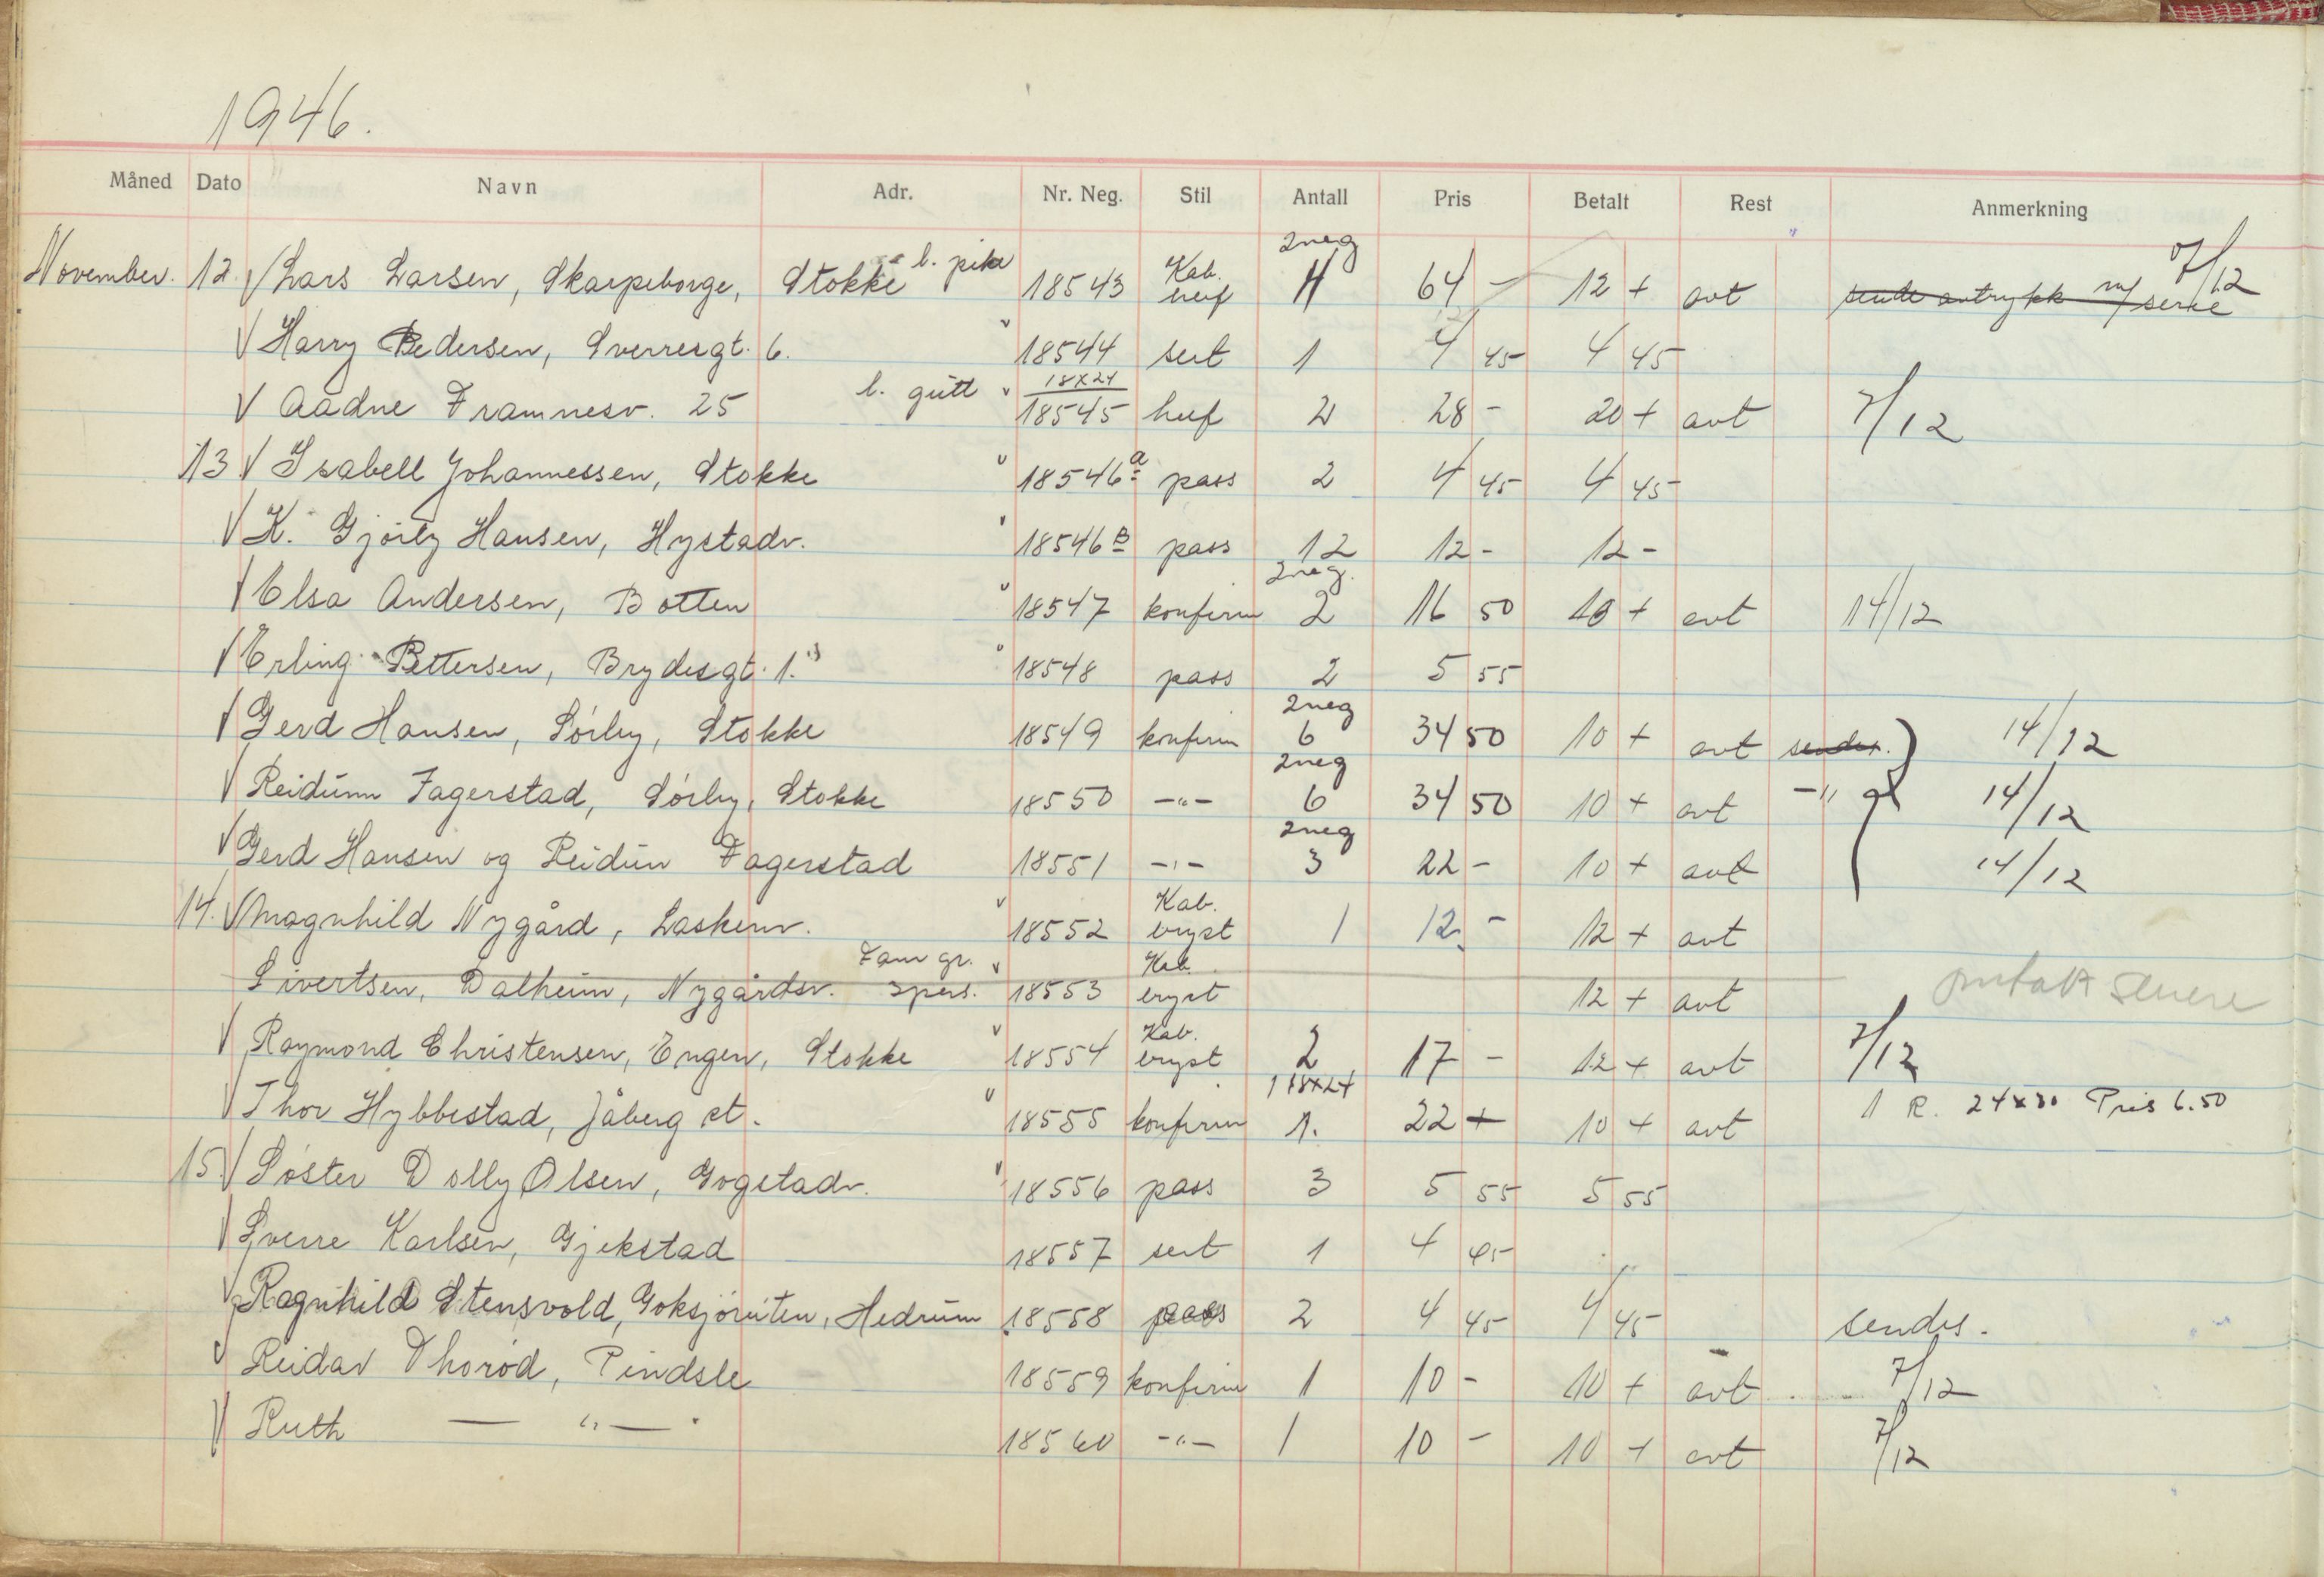 1946.
Måned Dato Navn Adr. Nr. Neg. Stil Antall Pris Betalt Rest Anmerkning
November. 12. √ Lars Larsen, Skarpeborge, Stokke l. pike 18543 Kab. 2neg 64 - 12 + avt sende avtrykk m/ serie 7/12
√ Harry Pedersen, Sverresgt. 6. " 18544 sert 1 4 45 4 45
√ Aadne Framnesv. 25 l. gutt " 18x24 18545 2 28 - 20 + avt 7/12
13 √ Isabell Johannessen, Stokke " 18546 a pass 2 4 45 4 45
√ K. Gjørtz Hansen, Hystadv. " 18546 B pass 12 12 - 12 -
√ Elsa Andersen, Botten " 18547 konfirm 2neg. 2 16 50 10 + avt 14/12
√ Erling Pettersen, Brydesgt. 1. " 18548 pass 2 5 55
√ Gerd Hansen, Sørby, Stokke 18549 konfirm 2neg 6 34 50 10 + avt sendes. 14/12
√ Reidunn Fagerstad, Sørby, Stokke 18550 -"- 2neg 6 34 50 10 + avt -" 14/12
√ Gerd Hansen og Reidun Fagerstad 18551 -"- 2neg 3 22 - 10 + avt 14/12
14. √ Magnhild Nygård, Laskenv. " 18552 Kab. bryst 1 12 - 12 + avt
Sivertsen, Dalheim, Nygårdsv. Fam gr. 3pers. " 18553 Kab. bryst 12 + avt omtatt senere
√ Raymond Christensen, Engen, Stokke " 18554 Kab. bryst 2 17 - 12 + avt 7/12
√ Thor Hybbestad, Jåberg st. " 18555 konfirm 1 18x24 1. 22 + 10 + avt 1 R. 24x30 Pris 6.50
15. √ Søster Dolly Olsen, Gogstadv. " 18556 pass 3 5 55 5 55
√ Sverre Karlsen, Gjekstad 18557 sert 1 4 45
√ Ragnhild Stensvold, Goksjøruten, Hedrum 18558 pass 2 4 45 4 45 sendes.
√ Reidar Thorød, Pindsle 18559 konfirm 1 10 - 10 + avt 7/12
√ Ruth — " — 18560 -"- 1 10 - 10 + avt 7/12